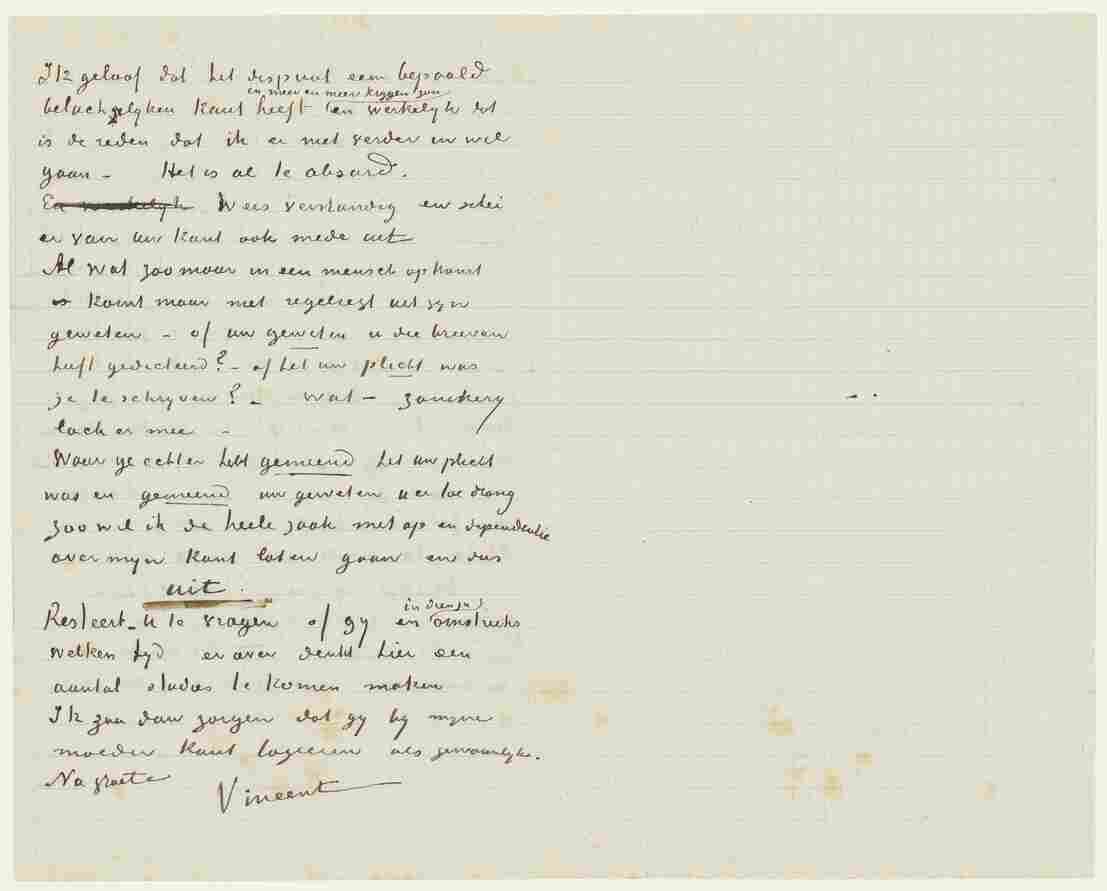 Ik geloof dat het dispuut een bepaald
en meer en meer krygen zou
belachelyken kant heeft en werkelyk dit
is de reden dat ik er niet verder in wil
gaan – Het is al te absurd.
En werkelyk Wees verstandig en schei
er van uw kant ook mede uit
Al wat zoo maar in een mensch opkomt
is komt maar niet regelregt uit zyn
geweten – of uw geweten u die brieven
heeft gedicteerd? – of het uw plicht was
ze te schryven? – Wat – zanikery
lach er mee –
Waar ge echter hebt gemeend het uw plicht
was en gemeend uw geweten u er toe drong
zoo wil ik de heele zaak met op en dependentie
over myn kant laten gaan en dus
uit.
Resteert u te vragen of gy en omstreeks
in dien ja
welken tyd erover denkt hier een
aantal studies te komen maken
Ik zou dan zorgen dat gy by myne
moeder kunt logeeren als gewoonlyk.
Na groete Vincent